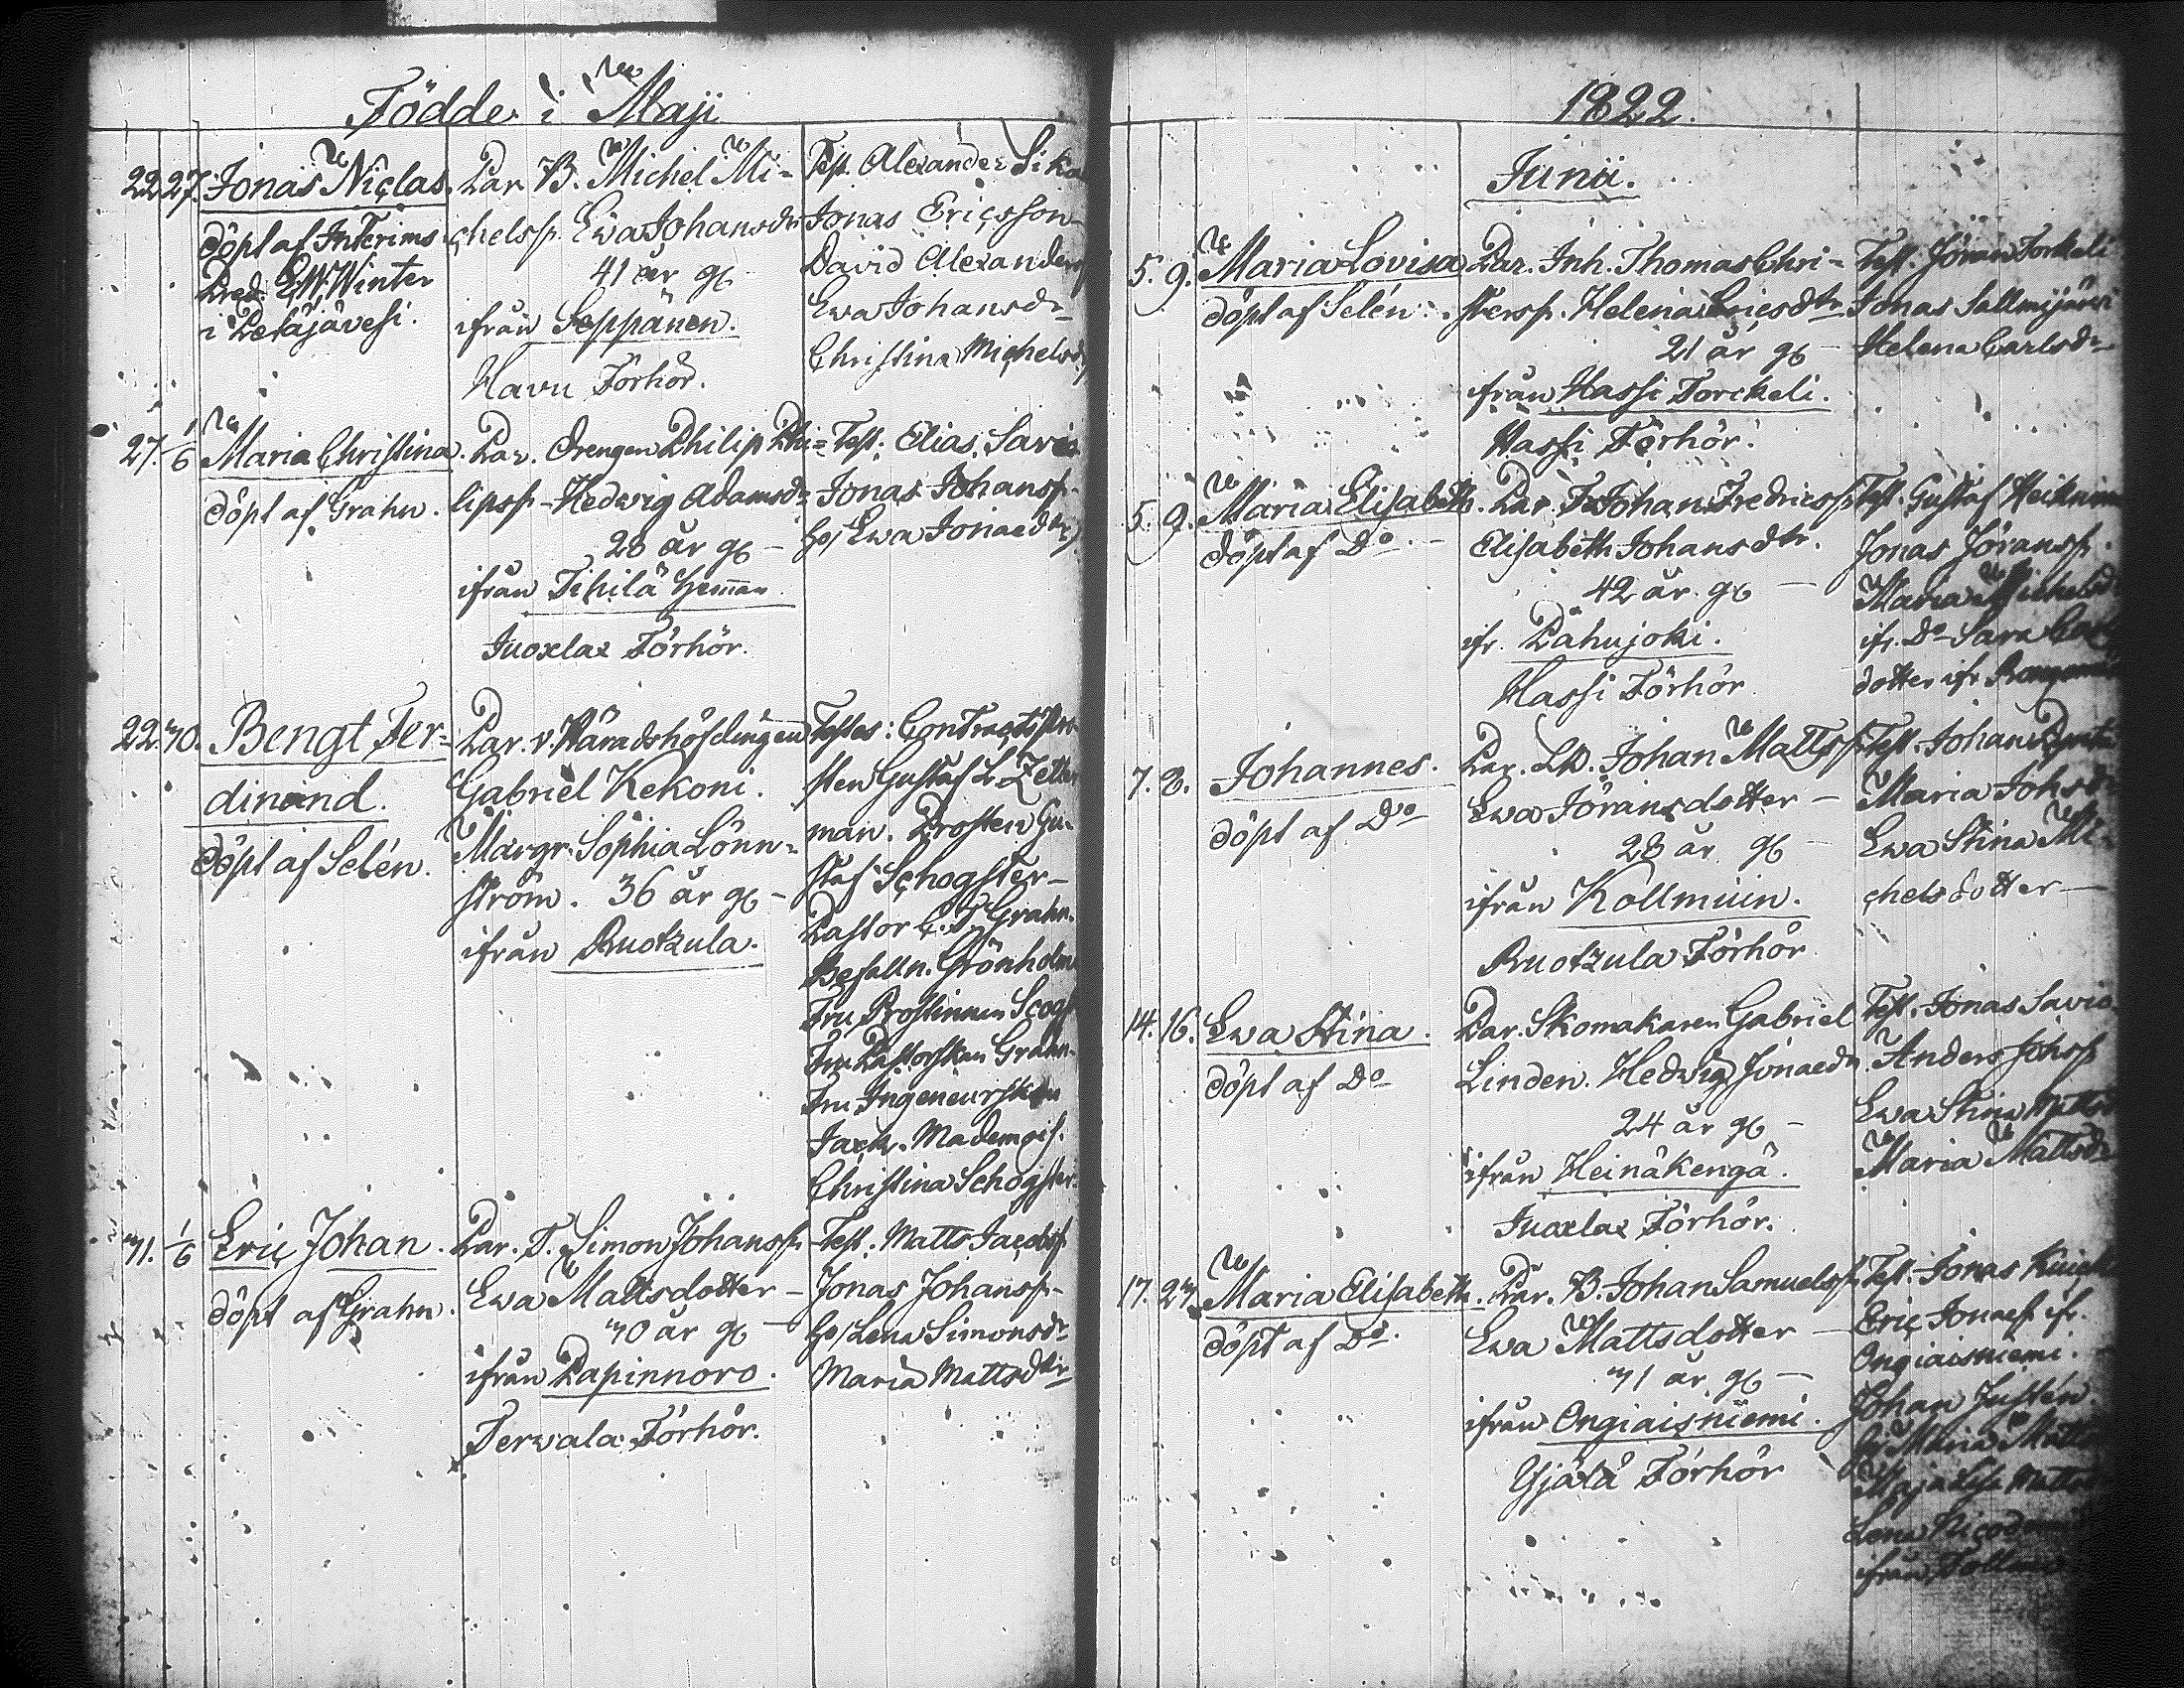 Födde i Maji
22. 27. Jonas Niclas.
döpt af Interims
Pred. E.W. Winter
i Petäjävesi.
Par. B. Michel Mi-
chelss. Ewa Johansdr
41 år gl
ifrån Seppänen.
Havu Förhör.
Test. Alexander Sika
Jonas Ericsson
David Alexanders
Ewa Johansdr
Christina Michelsdr
27. 1/6 Maria Christina.
döpt af Grahn.
Par. Drengen Philip Phi-
lipss. Hedvig Adamsdr
28 år gl
ifrån Tihilä Hem̄an
Juoxlax Förhör.
Test. Elias Savio
Jonas Johanss.
Ho/ Ewa Jonaedtr
22. 30. Bengt Fer-
dinand.
döpt af Selén.
Par. v. Häradshöfdingen
Gabriel Kekoni.
Margr. Sophia Lönn-
ström. 36 år gl
ifrån Ruotzula.
Testes: Contracts Pro-
sten Gustaf L. Zetter
man. Prosten Gu-
staf Schogster
Pastor C. F. Grahn.
Befalln. Grönholm
Fru Prostinnan Scogst
Fru Pastorskan Grahn.
Fru Ingeneurskan
Jack. Mademois.
Christina Schogster.
31. 1/6 Eric Johan.
döpt af Grahn.
Par. T. Simon Johanss.
Ewa Mattsdotter
30 år gl
ifrån Papinnoro.
Terwala Förhör.
Test. Matts Jacobss
Jonas Johanss.
Ho/ Lena Simonsdr
Maria Mattsdtr
1822.
Junii.
5. 9. Maria Lovisa
döpt af Selén.
Par. Inh. Thomas Chri-
sterss. Helena Ericsdtr
21 år gl
ifrån Hassi Torckeli.
Hassi Förhör.
Test. Jöran Torkeli
Jonas Sallmijärvi
Helena Carlsdr
5. 9. Maria Elisabeth.
döpt af Do
Par. T. Johan Fredricss.
Elisabeth Johansdtr.
42 år gl
ifr. Pähujoki.
Hassi Förhör
Test. Gustaf
Jonas Jöranss.
Maria Michelsdr
ifr. Do Sara
dotter ifr
7. 8. Johannes.
döpt af Do
Par. LD. Johan Mattss.
Ewa Jöransdotter
28 år gl
ifrån Kollmuin.
Ruotzula Förhör
Test. Johan
Maria Johsdr
Ewa Stina Mi-
chelsdotter
14. 16. Ewa Stina.
döpt af Do
Par. Skomakaren Gabriel
Linden. Hedvig Jonaedr.
24 år gl
ifrån Heinäkengä.
Juoxlax Förhör.
Test. Jonas Savio
Anders Johss
Ewa Stina Mattsdr
Maria Mattsdr
17. 23. Maria Elisabeth.
döpt af Do.
Par. B. Johan Samuelss.
Ewa Mattsdotter
31 år gl
ifrån Ongiaisniemi.
Yjälä Förhör
Test. Jonas
Eric Jonaess. ifr.
Ongiaisniemi.
Johan Justén.
Ho/ Maria
Maja
Lena
ifrån